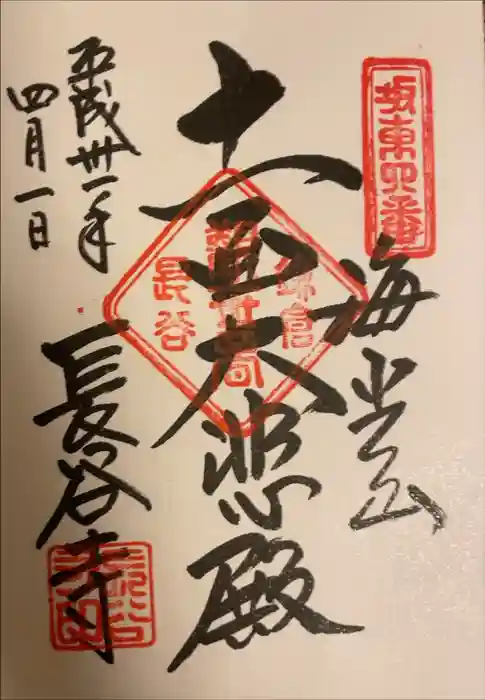 坂東四番
海光山
十一面大悲殿
鎌倉
観世音
長谷
平成卅一年
四月一日
長谷寺